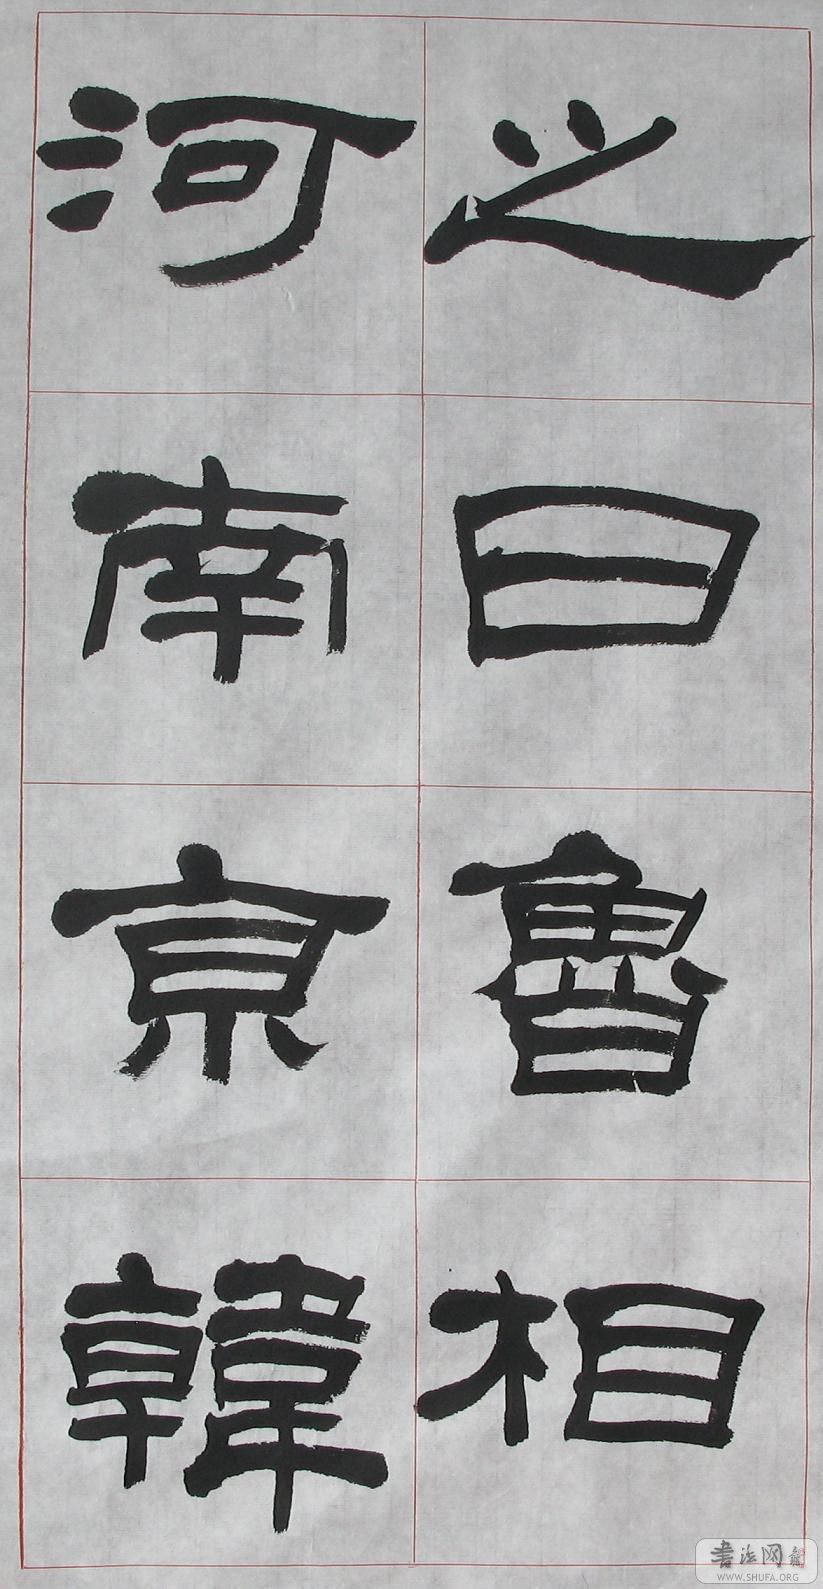 之日魯相
河南京韓
書法网
WWW.SHUFA.ORG